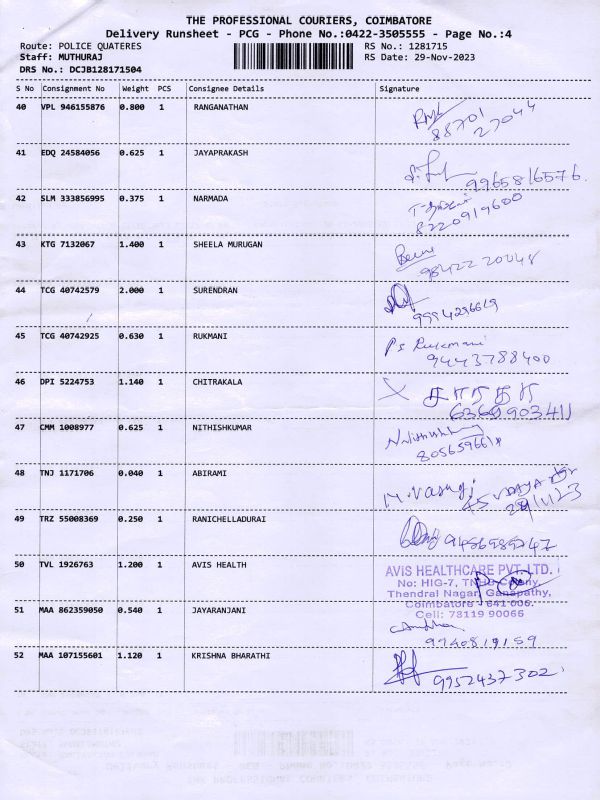 THE PROFESSIONAL COURIERS, COIMBATORE
Delivery Runsheet - PCG - Phone No.:0422-3505555 - Page No.:4
Route: POLICE QUATERES RS No.: 1281715
Staff: MUTHURAJ RS Date: 29-Nov-2023
DRS No.: DCJB128171504
S No Consignment No Weight PCS Consignee Details Signature
40 VPL 946155876 0.800 1 RANGANATHAN
88701
27044
41 EDQ 24584056 0.625 1 JAYAPRAKASH
9965816576.
42 SLM 333856995 0.375 1 NARMADA
8220919600
43 KTG 7132067 1.400 1 SHEELA MURUGAN
9842220048
44 TCG 40742579 2.000 1 SURENDRAN
9994296619
45 TCG 40742925 0.630 1 RUKMANI
PS Rukmani
9443788400
46 DPI 5224753 1.140 1 CHITRAKALA
6369903411
47 CMM 1008977 0.625 1 NITHISHKUMAR
Nithishkumar
8056596618
48 TNJ 1171706 0.040 1 ABIRAMI
M. Vasugi
29/11/23
49 TRZ 55008369 0.250 1 RANICHELLADURAI
50 TVL 1926763 1.200 1 AVIS HEALTH
AVIS HEALTHCARE PVT. LTD.
No: HIG-7, TNHB Colony,
Thendral Nagar, Ganapathy,
Coimbatore - 641 006.
Cell: 73119 90066
51 MAA 862359050 0.540 1 JAYARANJANI
9940819159
52 MAA 107155601 1.120 1 KRISHNA BHARATHI
9952437302